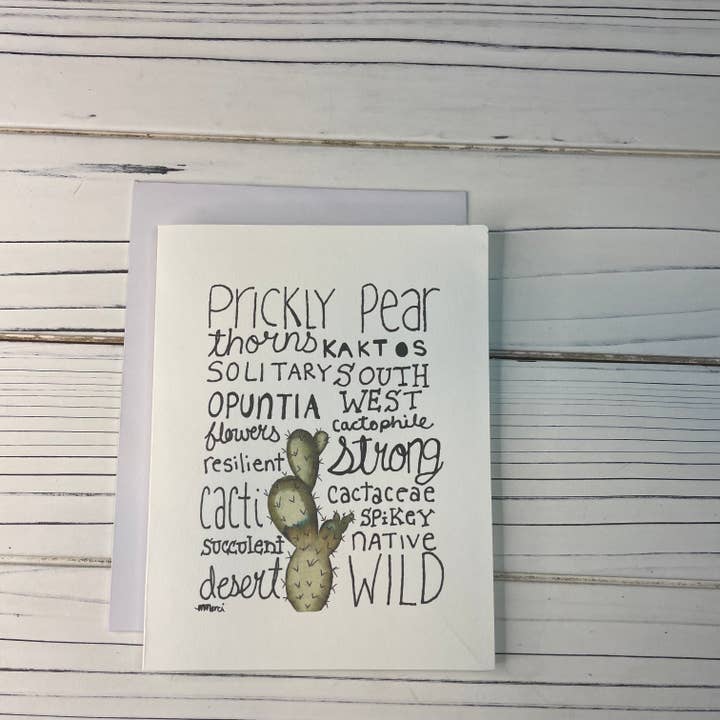 Prickly Pear
thorns KAKTOS
SOLITARY SOUTH
OPUNTIA WEST
flowers cactophile
resilient strong
cacti cactaceae
succulent SPiKEY
desert NATIVE
WILD